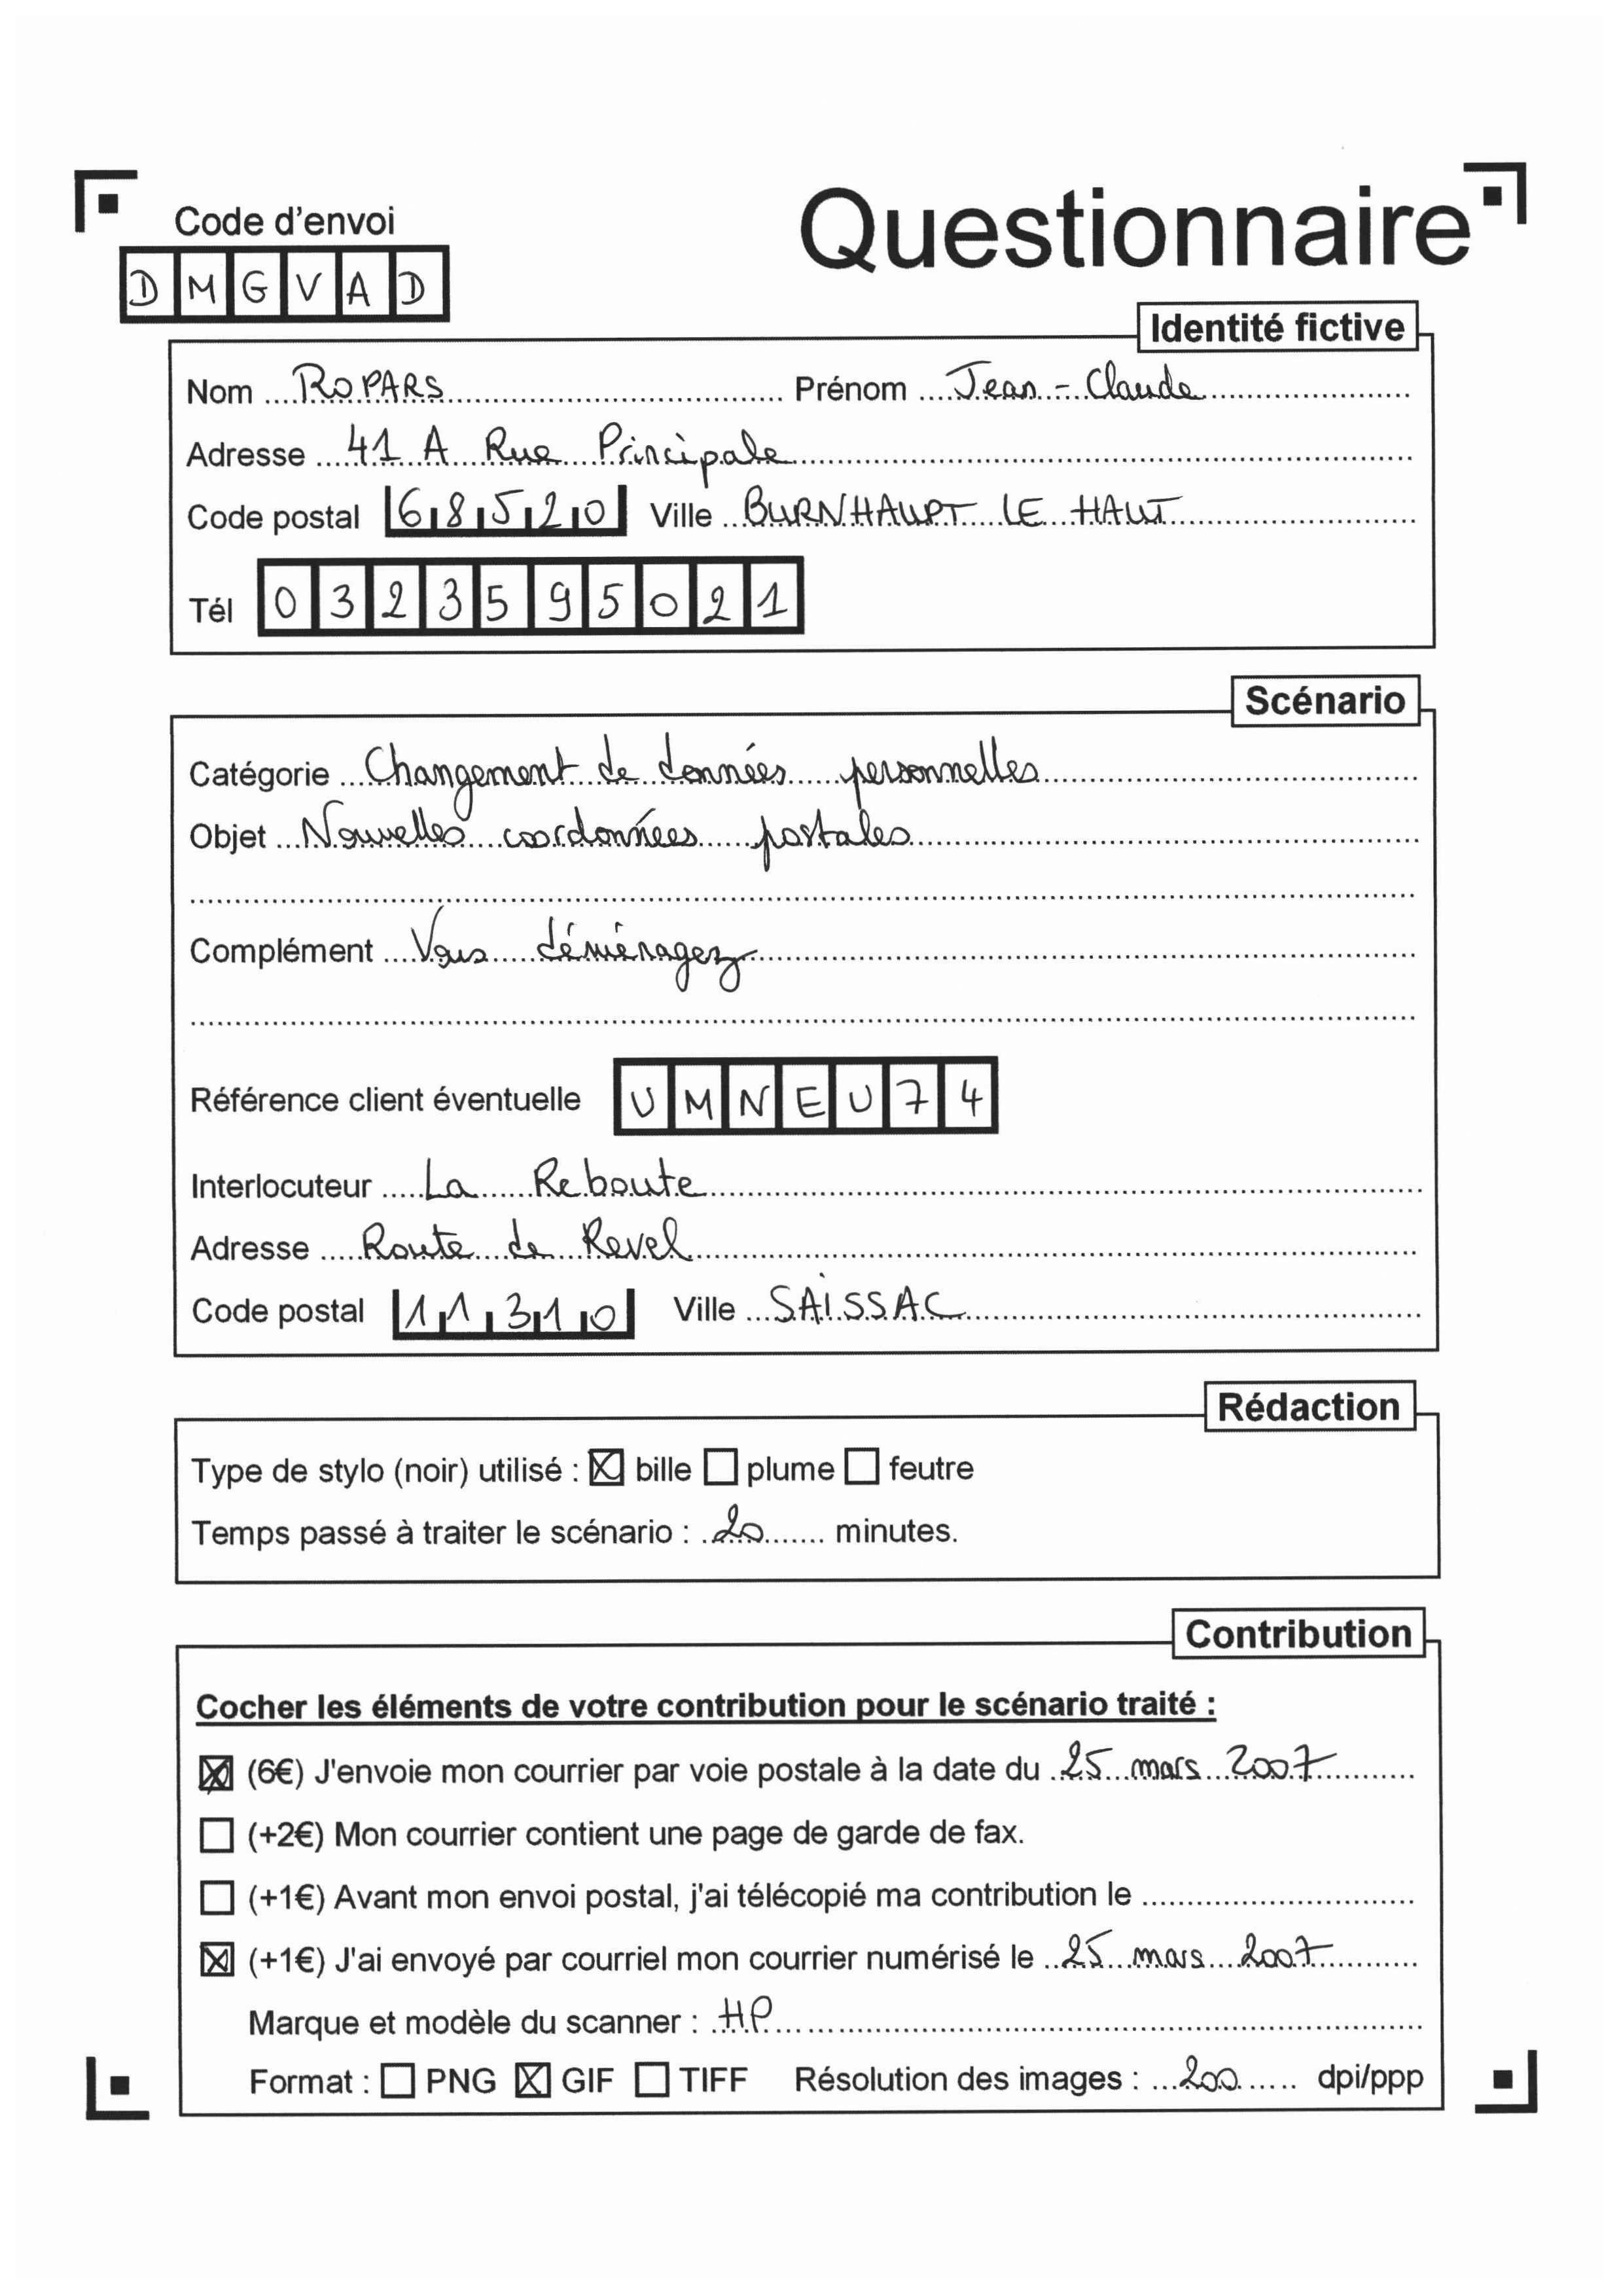 Code d'envoi
Questionnaire
DMGVAD
Identité fictive
Nom ROPARS Prénom Jean-Claude
Adresse 41 A Rue Principale
Code postal 68520 Ville BURNHAUPT LE HAUT
Tél 0323595021
Scénario
Catégorie Changement de données personnelles
Objet Nouvelles coordonnées postales
Complément Vous déménagez
Référence client éventuelle UMNEU74
Interlocuteur La Reboute
Adresse Route de Revel
Code postal 11310 Ville SAISSAC
Rédaction
Type de stylo (noir) utilisé : ☒ bille ☐ plume ☐ feutre
Temps passé à traiter le scénario : 20 minutes.
Contribution
Cocher les éléments de votre contribution pour le scénario traité :
☒ (6€) J'envoie mon courrier par voie postale à la date du 25 mars 2007
☐ (+2€) Mon courrier contient une page de garde de fax.
☐ (+1€) Avant mon envoi postal, j'ai télécopié ma contribution le
☒ (+1€) J'ai envoyé par courriel mon courrier numérisé le 25 mars 2007
Marque et modèle du scanner : HP
Format : ☐ PNG ☒ GIF ☐ TIFF Résolution des images : 200 dpi/ppp